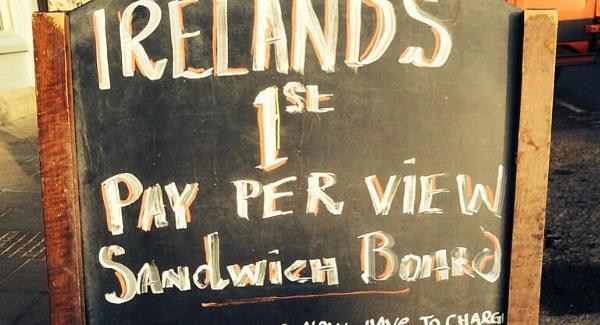 IRELANDS
1ST
PAY PER VIEW
SANDWICH BOARD
NOW HAVE TO CHARG